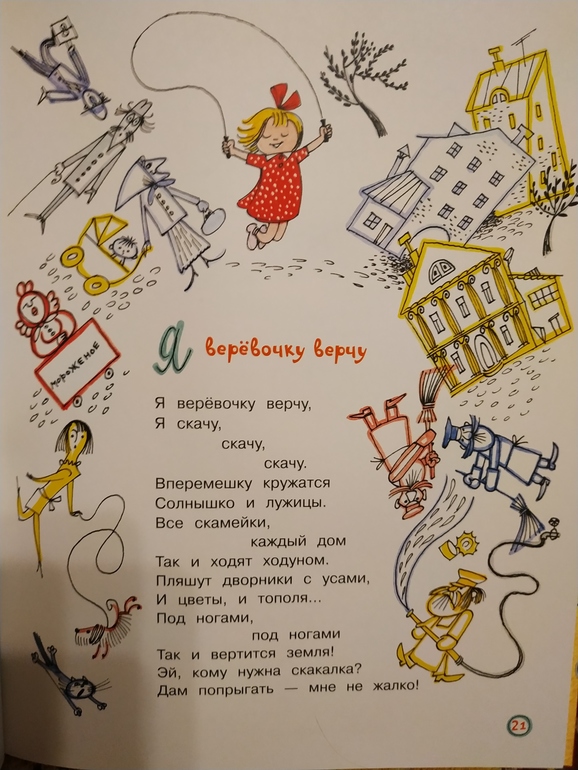 МОРОЖЕНОЕ
Я верёвочку верчу
Я верёвочку верчу,
Я скачу,
скачу,
скачу.
Вперемешку кружатся
Солнышко и лужицы.
Все скамейки,
каждый дом
Так и ходят ходуном.
Пляшут дворники с усами,
И цветы, и тополя...
Под ногами,
под ногами
Так и вертится земля!
Эй, кому нужна скакалка?
Дам попрыгать — мне не жалко!
21